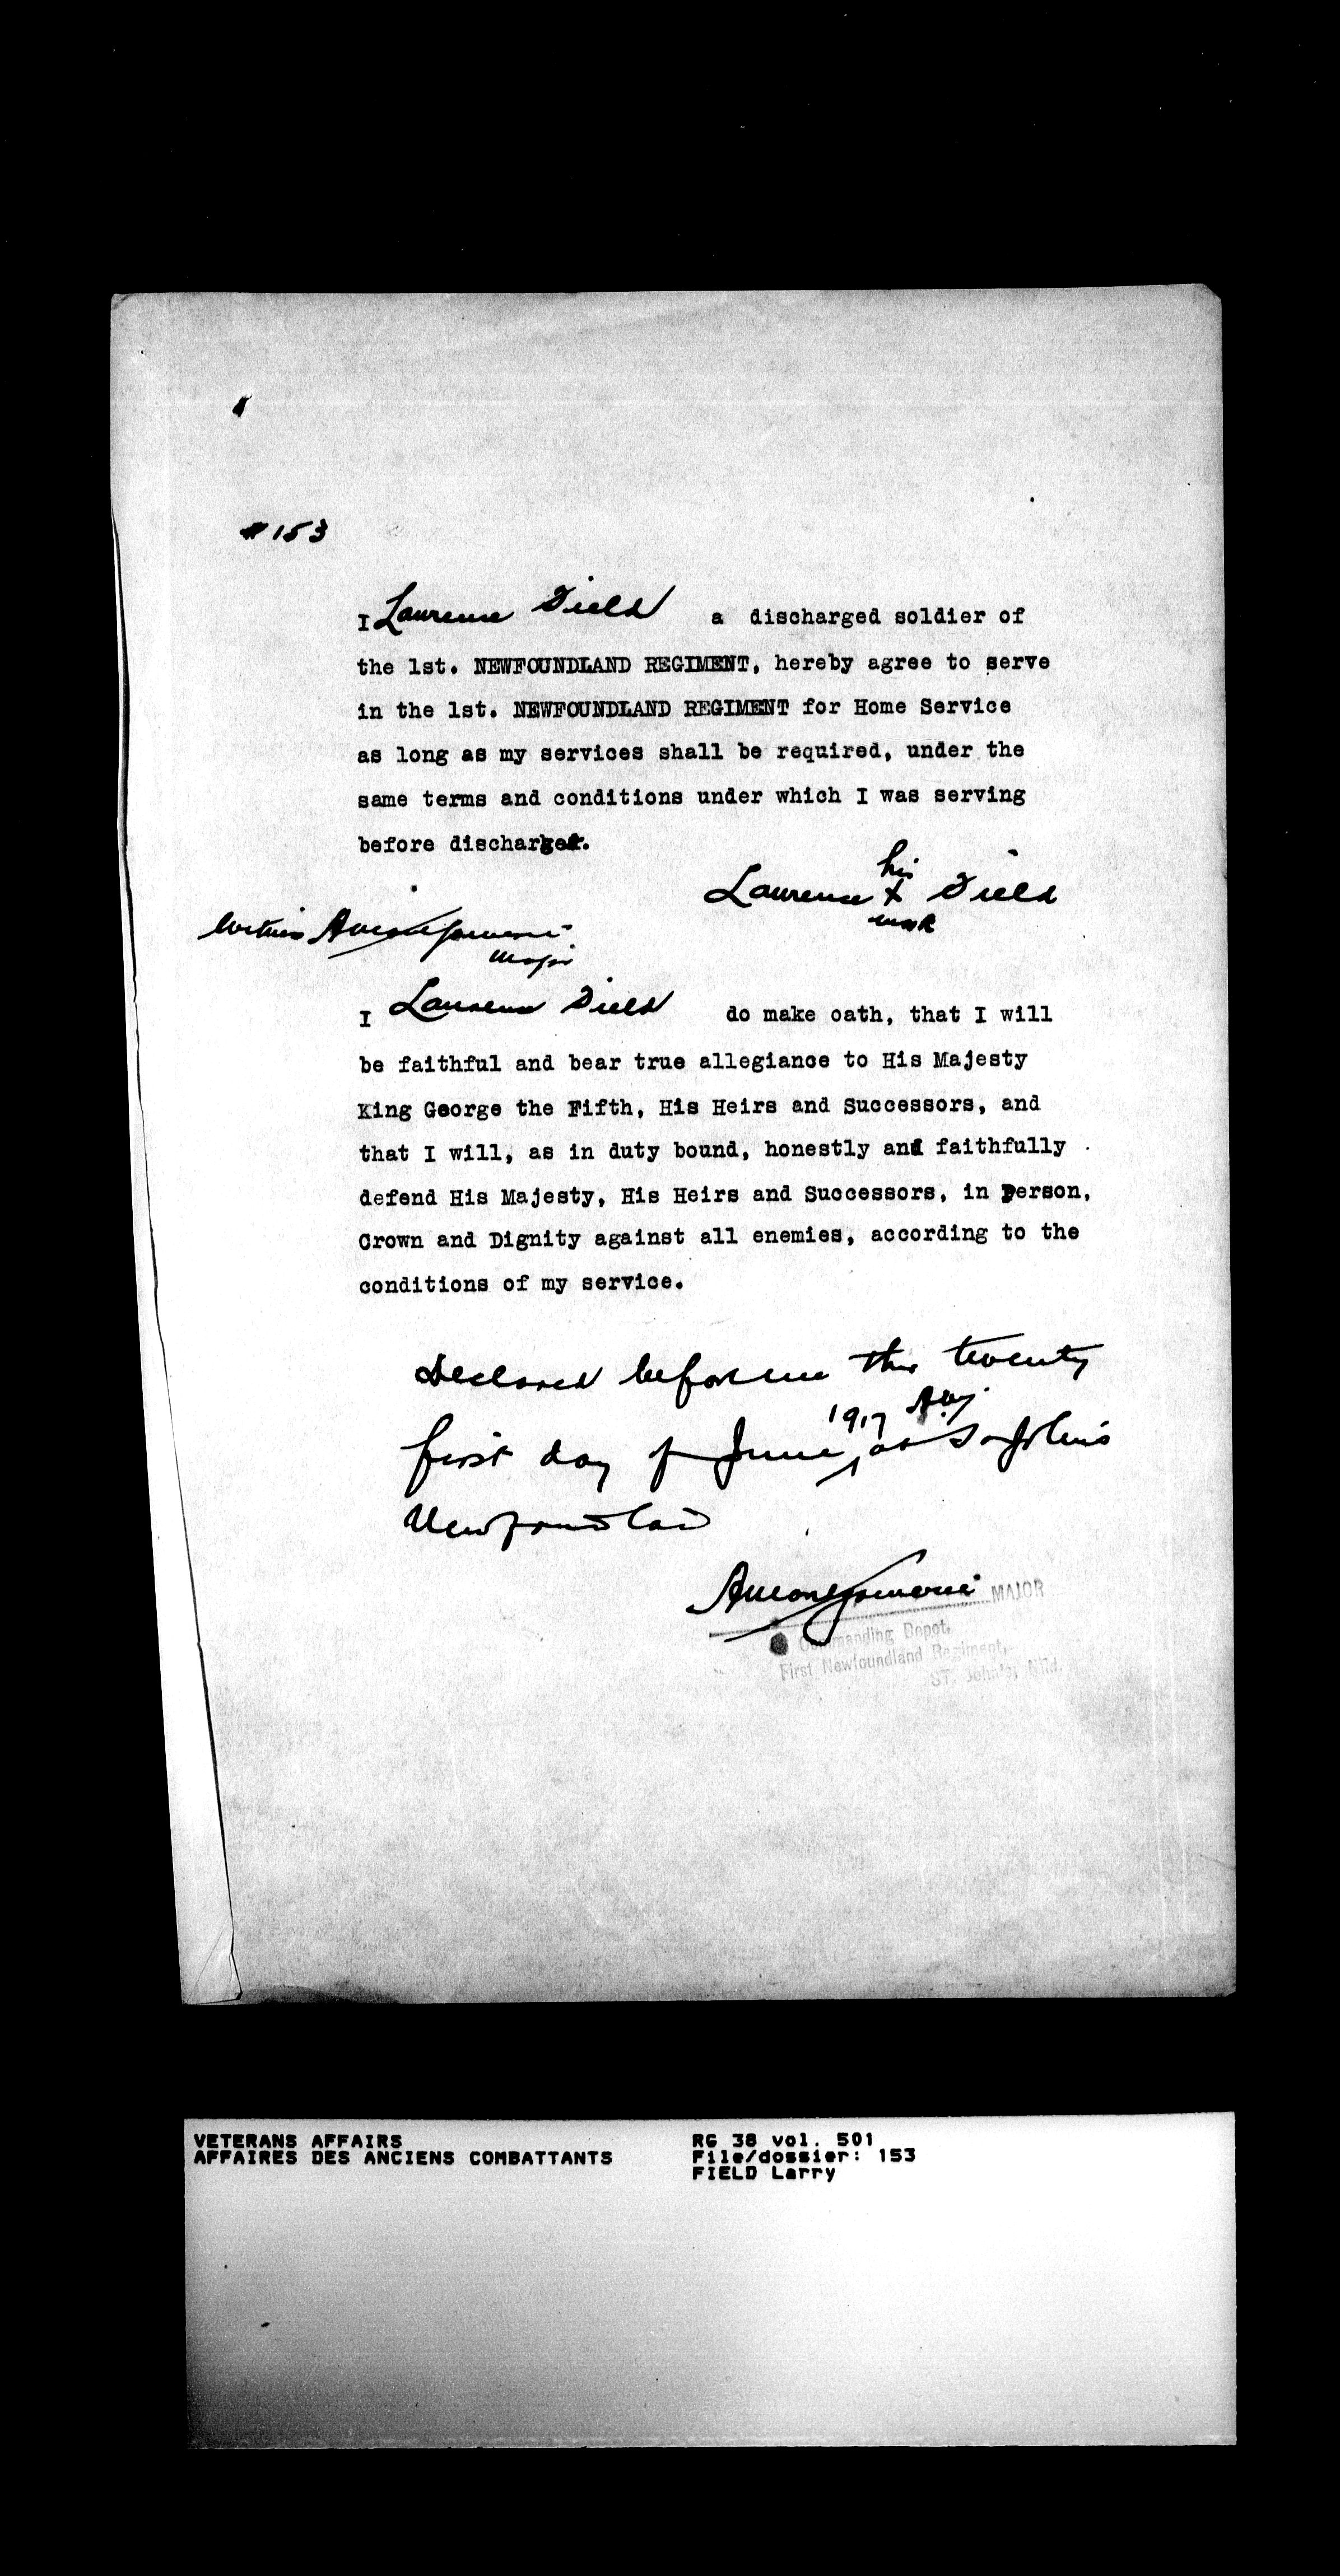 #153
I Laurence Field a discharged soldier of
the 1st. NEWFOUNDLAND REGIMENT, hereby agree to serve
in the 1st. NEWFOUNDLAND REGIMENT for Home Service
as long as my services shall be required, under the
same terms and conditions under which I was serving
before discharge.
his
Laurence X Field
mark
Witness AMontgomerie
Major
I Laurence Field do make oath, that I will
be faithful and bear true allegiance to His Majesty
King George the Fifth, His Heirs and Successors, and
that I will, as in duty bound, honestly and faithfully
defend His Majesty, His Heirs and Successors, in Person,
Crown and Dignity against all enemies, according to the
conditions of my service.
Declared before me this twenty
1917
first day of June, at St Johns
Newfoundland
AMontgomerie MAJOR
Commanding Depot,
First Newfoundland Regiment,
ST. John's, Nfld.
VETERANS AFFAIRS RG 38 vol. 501
AFFAIRES DES ANCIENS COMBATTANTS File/dossier: 153
FIELD Larry